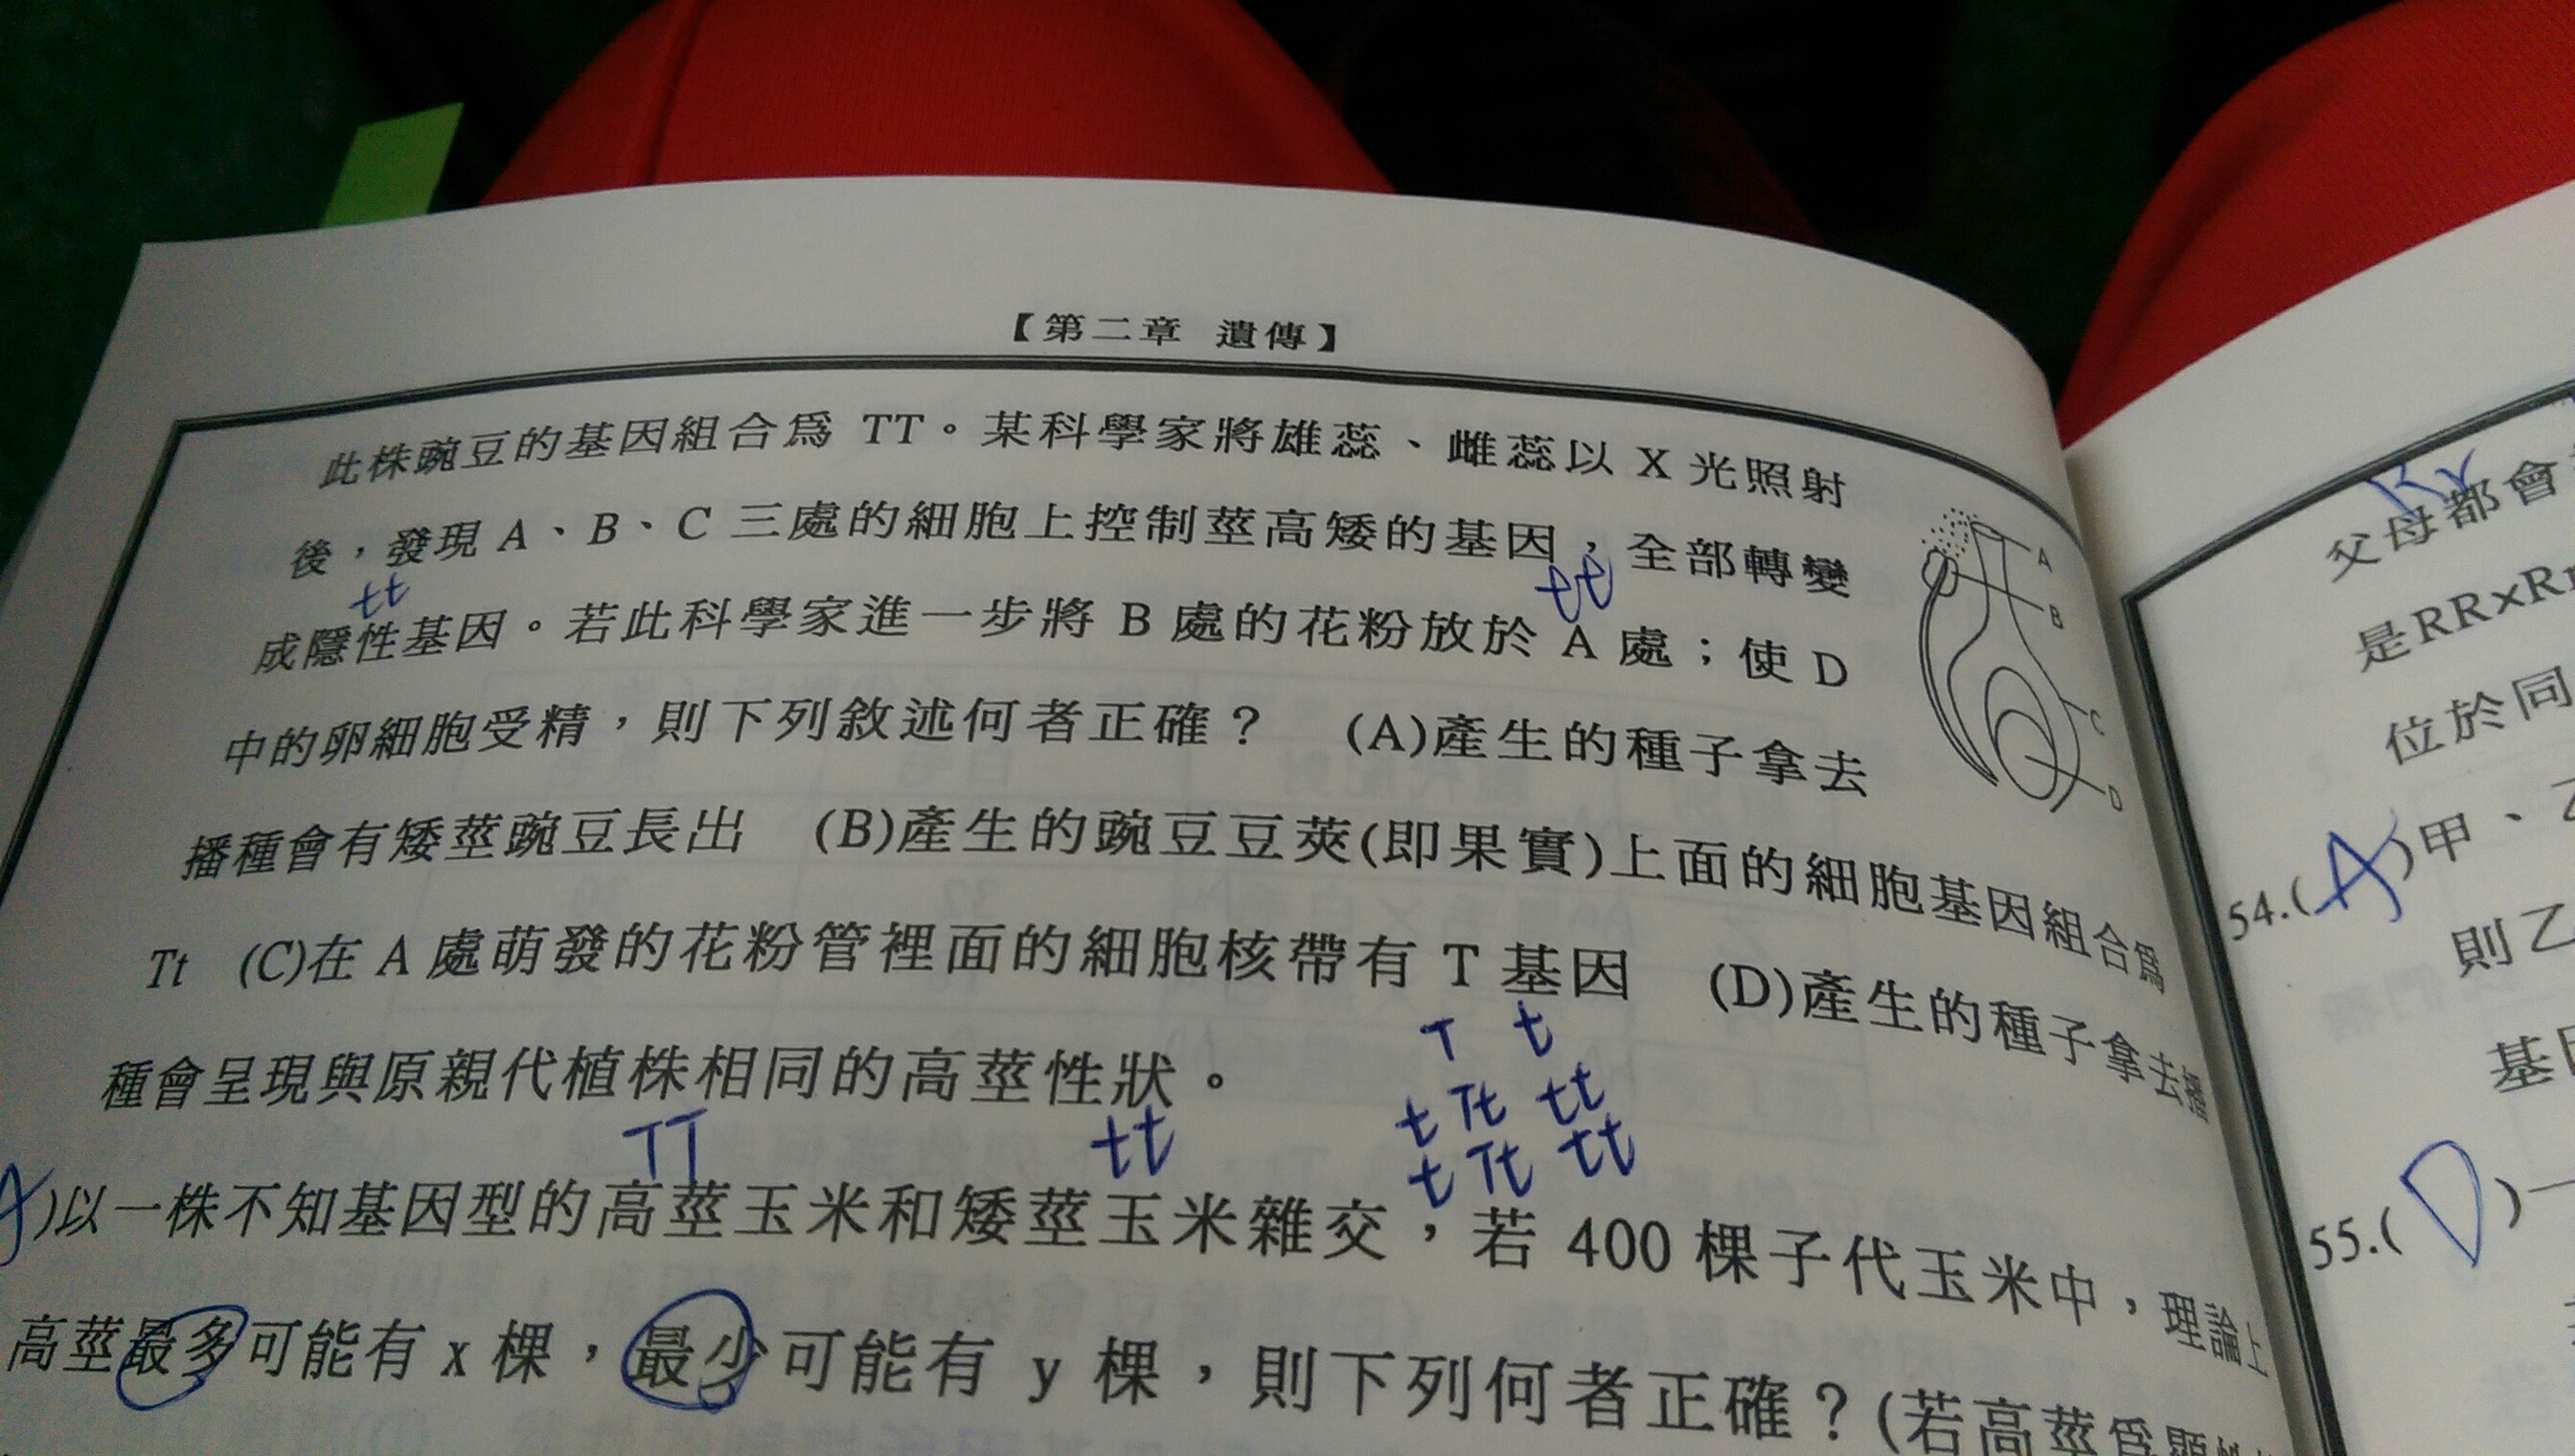 【第二章 遺傳】
此株豌豆的基因組合為 TT。某科學家將雄蕊、雌蕊以 X 光照射
後，發現 A、B、C 三處的細胞上控制莖高矮的基因，全部轉變
tt
tt
成隱性基因。若此科學家進一步將 B 處的花粉放於 A 處；使 D
中的卵細胞受精，則下列敘述何者正確？ (A)產生的種子拿去
播種會有矮莖豌豆長出 (B)產生的豌豆豆莢(即果實)上面的細胞基因組合為
Tt (C)在 A 處萌發的花粉管裡面的細胞核帶有 T 基因 (D)產生的種子拿去播
種會呈現與原親代植株相同的高莖性狀。
A
B
C
D
T t
t Tt tt
t Tt tt
TT
tt
)以一株不知基因型的高莖玉米和矮莖玉米雜交，若 400 棵子代玉米中，理論上
高莖最多可能有 x 棵，最少可能有 y 棵，則下列何者正確？(若高莖為顯
Rr
父母都會
是RR×Rr
位於同
54.(A)甲、乙
則乙
基因
55.(D)一